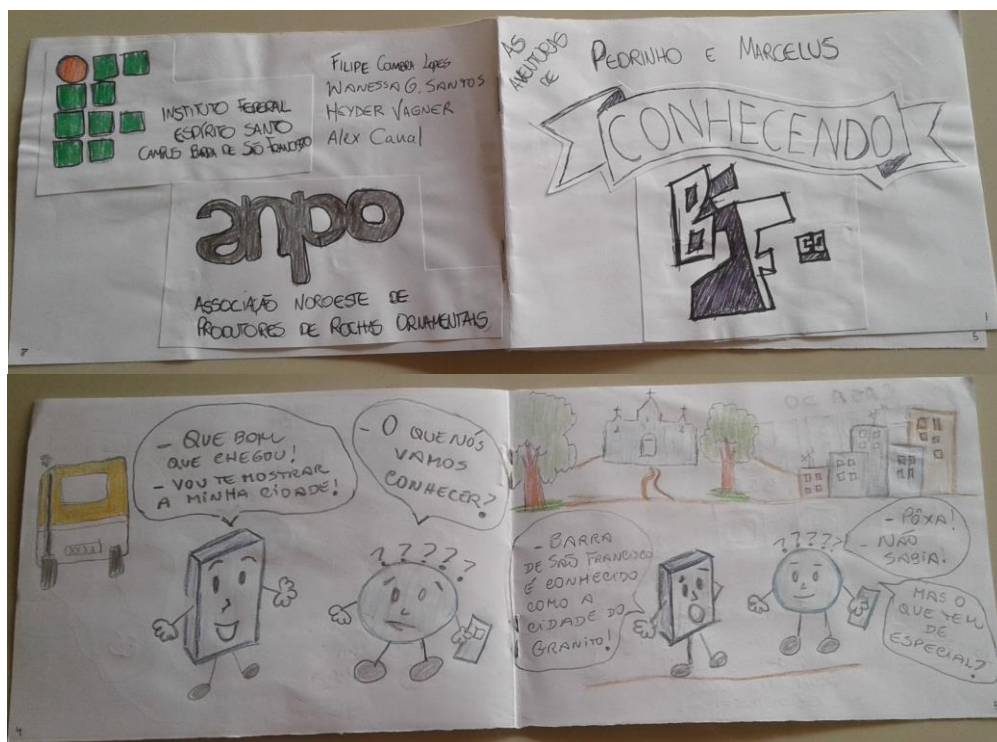 INSTITUTO FEDERAL
ESPÍRITO SANTO
CAMPUS BARRA DE SÃO FRANCISCO
FILIPE COIMBRA LOPES
WANESSA G. SANTOS
HEYDER VAGNER
Alex Caual
anpo
ASSOCIAÇÃO NOROESTE DE
PRODUTORES DE ROCHAS ORNAMENTAIS
8
AS
AVENTURAS
DE
PEDRINHO E MARCELUS
CONHECENDO
BSF
1
5
- QUE BOM
QUE CHEGOU!
- VOU TE MOSTRAR
A MINHA CIDADE!
- O QUE NÓS
VAMOS
CONHECER?
?????
4
- BARRA
DE SÃO FRANCISCO
É CONHECIDO
COMO A
CIDADE DO
GRANITO!
?????
- PÔXA!
- NÃO
SABIA!
MAS O
QUE TEM
DE
ESPECIAL?
5